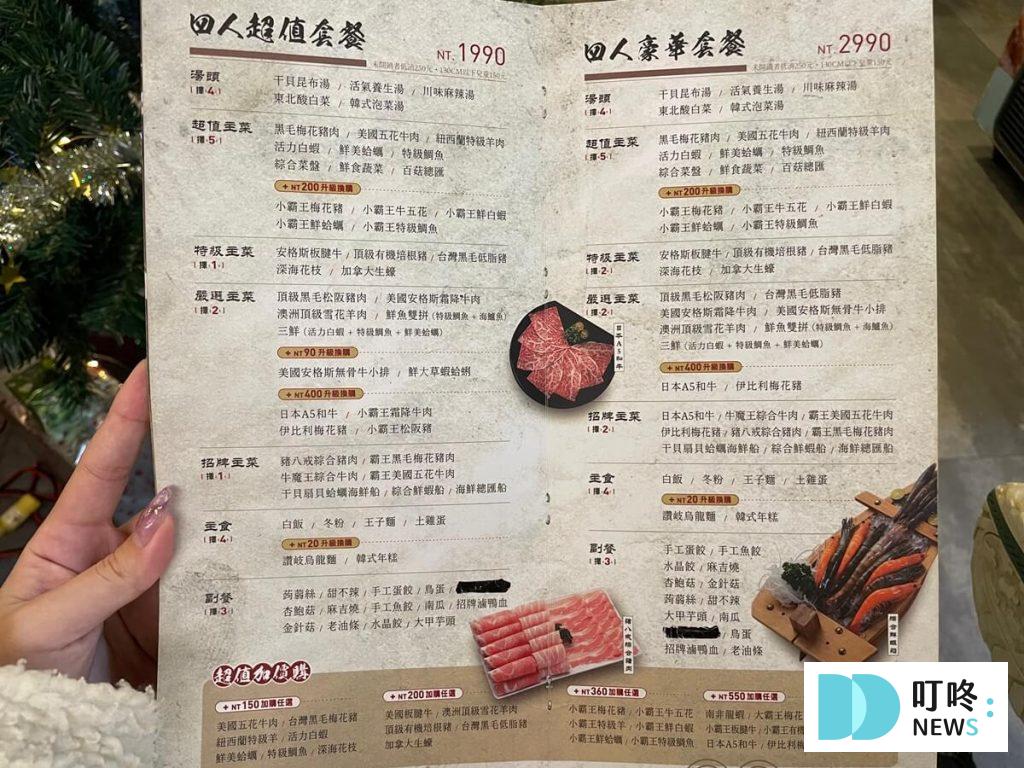 四人超值套餐 NT.1990
未開鍋者低消250元・130CM以下兒童150元
湯頭
(擇・4・)
干貝昆布湯 / 活氣養生湯 / 川味麻辣湯
東北酸白菜 / 韓式泡菜湯
超值主菜
(擇・5・)
黑毛梅花豬肉 / 美國五花牛肉 / 紐西蘭特級羊肉
活力白蝦 / 鮮美蛤蠣 / 特級鯛魚
綜合菜盤 / 鮮食蔬菜 / 百菇總匯
+NT200升級換購
小霸王梅花豬 / 小霸王牛五花 / 小霸王鮮白蝦
小霸王鮮蛤蠣 / 小霸王特級鯛魚
特級主菜
(擇・1・)
安格斯板腱牛 / 頂級有機培根豬 / 台灣黑毛低脂豬
深海花枝 / 加拿大生蠔
嚴選主菜
(擇・2・)
頂級黑毛松阪豬肉 / 美國安格斯霜降牛肉
澳洲頂級雪花羊肉 / 鮮魚雙拼(特級鯛魚+海鱺魚)
三鮮(活力白蝦+特級鯛魚+鮮美蛤蠣)
+NT90升級換購
美國安格斯無骨牛小排 / 鮮大草蝦蛤蜊
+NT400升級換購
日本A5和牛 / 小霸王霜降牛肉
伊比利梅花豬 / 小霸王松阪豬
招牌主菜
(擇・1・)
豬八戒綜合豬肉 / 霸王黑毛梅花豬肉
牛魔王綜合牛肉 / 霸王美國五花牛肉
干貝扇貝蛤蠣海鮮船 / 綜合鮮蝦船 / 海鮮總匯船
主食
(擇・4・)
白飯 / 冬粉 / 王子麵 / 土雞蛋
+NT20升級換購
讚岐烏龍麵 / 韓式年糕
副餐
(擇・3・)
蒟蒻絲 / 甜不辣 / 手工蛋餃 / 鳥蛋 /
杏鮑菇 / 麻吉燒 / 手工魚餃 / 南瓜 / 招牌滷鴨血
金針菇 / 老油條 / 水晶餃 / 大甲芋頭
四人豪華套餐 NT.2990
未開鍋者低消250元・130CM以下兒童150元
湯頭
(擇・4・)
干貝昆布湯 / 活氣養生湯 / 川味麻辣湯
東北酸白菜 / 韓式泡菜湯
超值主菜
(擇・5・)
黑毛梅花豬肉 / 美國五花牛肉 / 紐西蘭特級羊肉
活力白蝦 / 鮮美蛤蠣 / 特級鯛魚
綜合菜盤 / 鮮食蔬菜 / 百菇總匯
+NT200升級換購
小霸王梅花豬 / 小霸王牛五花 / 小霸王鮮白蝦
小霸王鮮蛤蠣 / 小霸王特級鯛魚
特級主菜
(擇・2・)
安格斯板腱牛 / 頂級有機培根豬 / 台灣黑毛低脂豬
深海花枝 / 加拿大生蠔
嚴選主菜
(擇・2・)
頂級黑毛松阪豬肉 / 台灣黑毛低脂豬
美國安格斯霜降牛肉 / 美國安格斯無骨牛小排
澳洲頂級雪花羊肉 / 鮮魚雙拼(特級鯛魚+海鱺魚)
三鮮(活力白蝦+特級鯛魚+鮮美蛤蠣)
+NT400升級換購
日本A5和牛 / 伊比利梅花豬
招牌主菜
(擇・2・)
日本A5和牛 / 牛魔王綜合牛肉 / 霸王美國五花牛肉
伊比利梅花豬 / 豬八戒綜合豬肉 / 霸王黑毛梅花豬肉
干貝扇貝蛤蠣海鮮船 / 綜合鮮蝦船 / 海鮮總匯船
主食
(擇・4・)
白飯 / 冬粉 / 王子麵 / 土雞蛋
+NT20升級換購
讚岐烏龍麵 / 韓式年糕
副餐
(擇・3・)
手工蛋餃 / 手工魚餃
水晶餃 / 麻吉燒
杏鮑菇 / 金針菇
蒟蒻絲 / 甜不辣
大甲芋頭 / 南瓜
/ 鳥蛋
招牌滷鴨血 / 老油條
日本A5和牛
豬八戒綜合豬肉
綜合鮮蝦船
超值加價購
+NT150加購任選
美國五花牛肉 / 台灣黑毛梅花豬
紐西蘭特級羊 / 活力白蝦
鮮美蛤蠣 / 特級鯛魚 / 深海花枝
+NT200加購任選
美國板腱牛 / 澳洲頂級雪花羊肉
頂級有機培根豬 / 台灣黑毛低脂豬
加拿大生蠔
+NT360加購任選
小霸王梅花豬 / 小霸王牛五花
小霸王特級羊 / 小霸王白蝦
小霸王鮮蛤蠣 / 小霸王特級鯛魚
+NT550加購任選
南非龍蝦 / 大霸王梅花
小霸王板腱牛 / 小霸王有機
日本A5和牛 / 伊比利梅
叮咚
NEWS